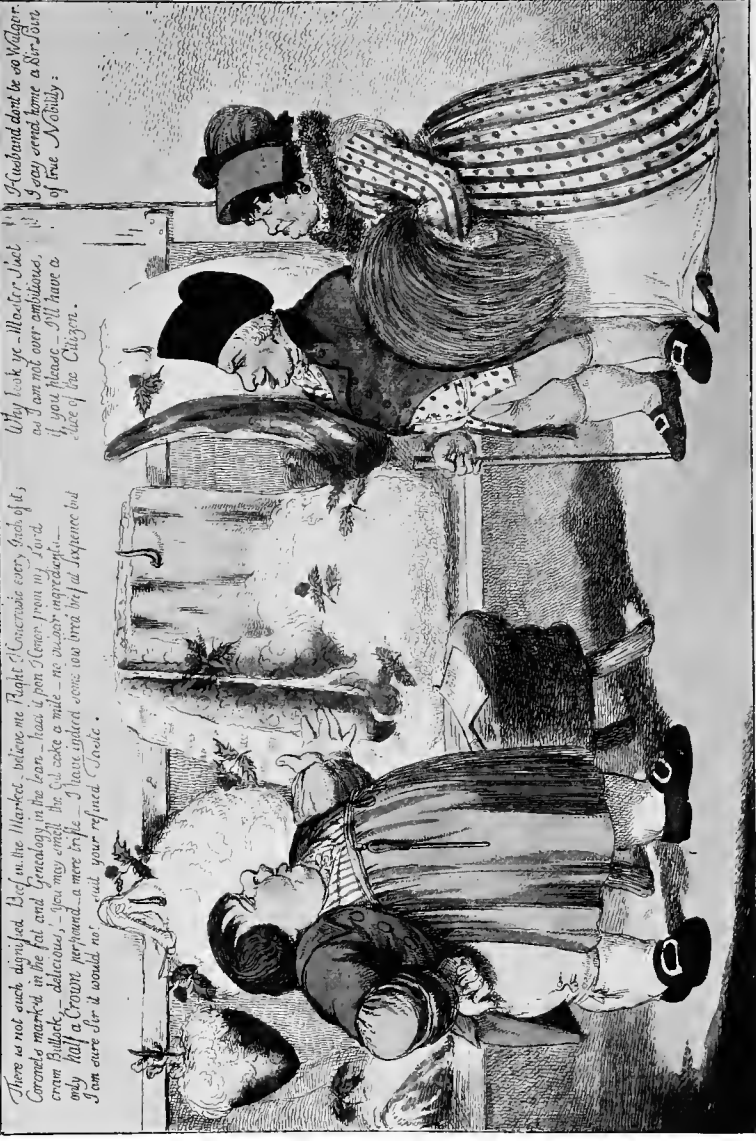 There is not such dignified Beef in the Market, believe me Right Honorable every Inch of it;
Coronets mark'd in the fat and Genealogy in the lean _ had it pon Honor from my Lord
cram Bullock, _ delicious, You may smell the oil cake a mile _ no vulgar ingredients _
only half a Crown per pound _ a mere trifle _ I have indeed some low bred beef at Sixpence but
I am sure Sir it would not suit your refined Taste.
Why look ye _ Master Suet
as I am not over ambitious,
if you please _ I'll have a
slice of the Citizen.
Husband dont be so Wulgar.
I say send home a Sir Loin
of true Nobility: